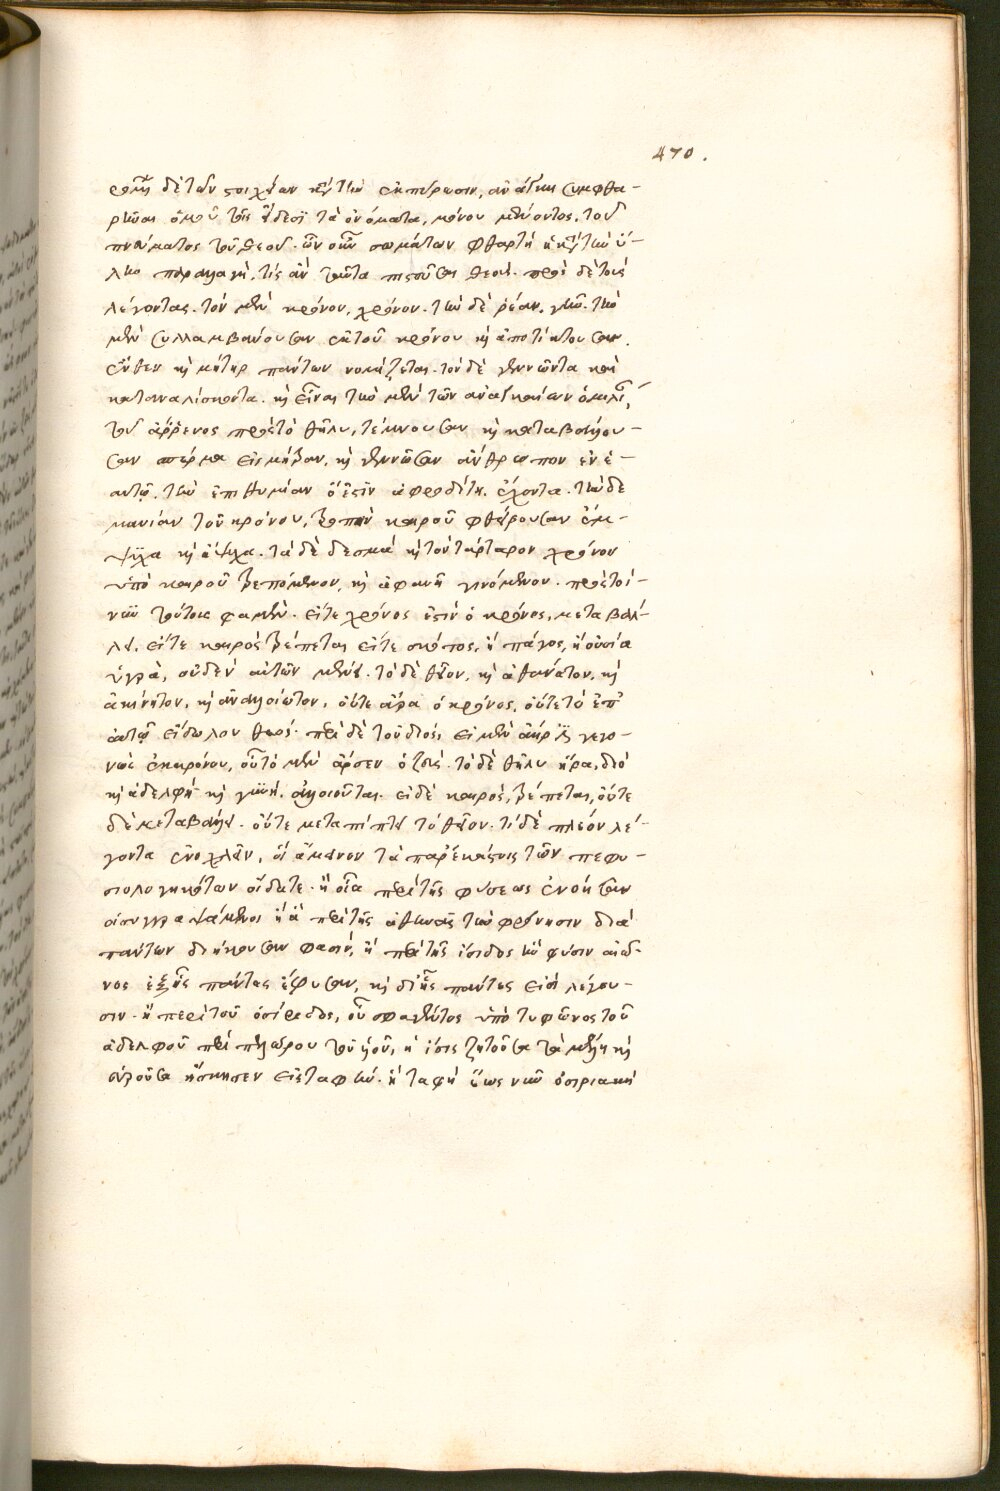 470.
φὴν δὲ τῶν στοιχείων κατὰ τὴν ἐκπύρωσιν, ἀνάγκη συμφθα-
ρῆναι ὁμοῦ τοῖς εἴδεσι τὰ ὀνόματα, μόνου μένοντος, τοῦ
πνεύματος τοῦ θεοῦ. ὧν οὖν σωμάτων φθαρτὴ ἡ κατὰ τὴν ὕ-
λην παραλλαγὴ, τίς ἂν ταῦτα πιστεῦσαι θεούς. πρὸς δὲ τοὺς
λέγοντας. τὸν μὲν κρόνον, χρόνον. τὴν δὲ ῥέαν, γῆν. τὴν
μὲν συλλαμβάνουσαν ἐκ τοῦ κρόνου καὶ ἀποτίκτουσαν.
ἔνθεν καὶ μήτηρ πάντων νομίζεται. τὸν δὲ γεννῶντα καὶ
καταναλίσκοντα. καὶ εἶναι τὴν μὲν τῶν ἀναγκαίων ὁμιλίαν,
τοῦ ἄρρενος πρὸς τὸ θῆλυ, τέμνουσαν καὶ καταβάλλου-
σαν σπέρμα εἰς μήτραν, καὶ γεννῶσαν ἄνθρωπον ἐν ἑ-
αυτῷ. τὴν ἐπιθυμίαν ὅ ἐστιν ἀφροδίτη, ἔχοντα. τὴν δὲ
μανίαν τοῦ κρόνου, τροπὴν καιροῦ φθείρουσαν ἔμ-
ψυχα καὶ ἄψυχα. τὰ δὲ δεσμὰ καὶ τὸν τάρταρον χρόνον
ὑπὸ καιροῦ τρεπόμενον, καὶ ἀφανῆ γινόμενον. πρὸς τοί-
νυν τούτους φαμὲν. εἴτε χρόνος ἐστὶν ὁ κρόνος, μεταβάλ-
λει. εἴτε καιρὸς τρέπεται εἴτε σκότος, ἢ πάγος, ἢ οὐσία
ὑγρὰ, οὐδὲν αὐτῶν μένει. τὸ δὲ θεῖον, καὶ ἀθάνατον, καὶ
ἀκίνητον, καὶ ἀναλλοίωτον. οὔτε ἄρα ὁ κρόνος, οὔτε τὸ ἐπ'
αὐτῷ εἴδωλον θεός. περὶ δὲ τοῦ διὸς, εἰ μὲν ἀήρ ἐστι γεγο-
νὼς ἐκ κρόνου, οὗ τὸ μὲν ἄρσεν ὁ ζεὺς. τὸ δὲ θῆλυ ἥρα, διὸ
καὶ ἀδελφὴ καὶ γυνή. ἀλλοιοῦται. εἰ δὲ καιρὸς, τρέπεται, οὔτε
δὲ μεταβάλλει. οὔτε μεταπίπτει τὸ θεῖον. τί δὲ πλέον λέ-
γοντα ἐνοχλεῖν, οἳ ἄμεινον τὰ παρ' ἑκάστοις τῶν πεφυ-
σιολογηκότων οἴδατε. ἢ οἷα περὶ τῆς φύσεως ἐνόησαν
οἱ συγγραψάμενοι ἢ ἃ περὶ τῆς ἀθηνᾶς τὴν φρόνησιν διὰ
πάντων διήκουσαν φασὶν, ἢ περὶ τῆς ἴσιδος ἣν φύσιν αἰῶ-
νος ἐξ ἧς πάντες ἔφυσαν, καὶ δι' ἧς πάντες εἰσὶ λέγου-
σιν. ἢ περὶ τοῦ ὀσίριδος, οὗ σφαγέντος ὑπὸ τυφῶνος τοῦ
ἀδελφοῦ περὶ πελώρου τοῦ υἱοῦ, ἡ ἴσις ζητοῦσα τὰ μέλη καὶ
εὑροῦσα ἤσκησεν εἰς ταφὴν. ἣ ταφὴ ἕως νῦν ὀσιριακὴ